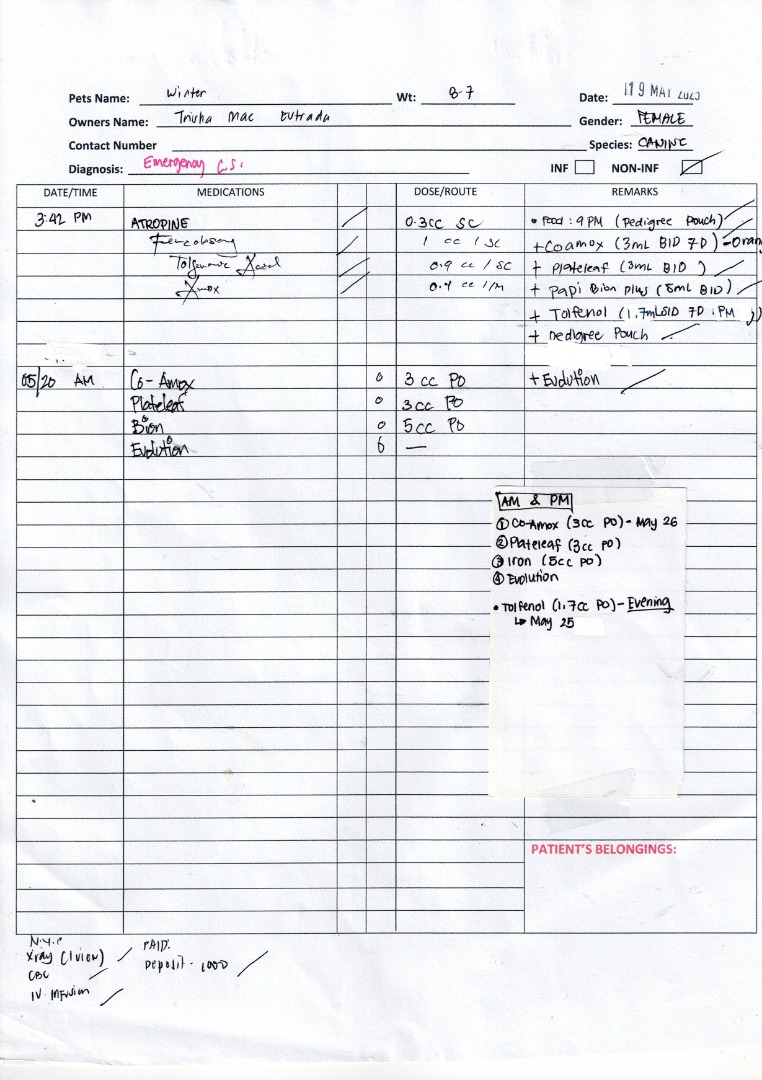 Pets Name: Winter Wt: 8.7 Date: 19 MAY 2025
Owners Name: Trisha Mae Gender: FEMALE
Contact Number Species: CANINE
Diagnosis: Emergency C.S. INF NON-INF
DATE/TIME MEDICATIONS DOSE/ROUTE REMARKS
3:42 PM ATROPINE 0.3cc SC • Food: 9 PM (Pedigree Pouch)
1 cc / SC + Coamox (3mL BID 7D) - Oran
Tolfenamic 0.9 cc / SC + Plateleaf (3mL BID )
Amox + Papi Bion plus (5mL BID)
+ Tolfenol (1.7mL SID 7D PM )
+ Pedigree Pouch
05/20 AM Co-Amox 0 3 cc PO + Evolution
Plateleaf 0 3cc PO
Bion 0 5cc PO
Evolution —
AM & PM
① Co-Amox (3cc PO) - May 26
② Plateleaf (3cc PO)
③ Iron (5cc PO)
④ Evolution
• Tolfenol (1.7cc PO) - Evening
↳ May 25
PATIENT'S BELONGINGS:
N.Y.P PAID.
Xray (1 view) Deposit - 1000
CBC
IV. Infusion